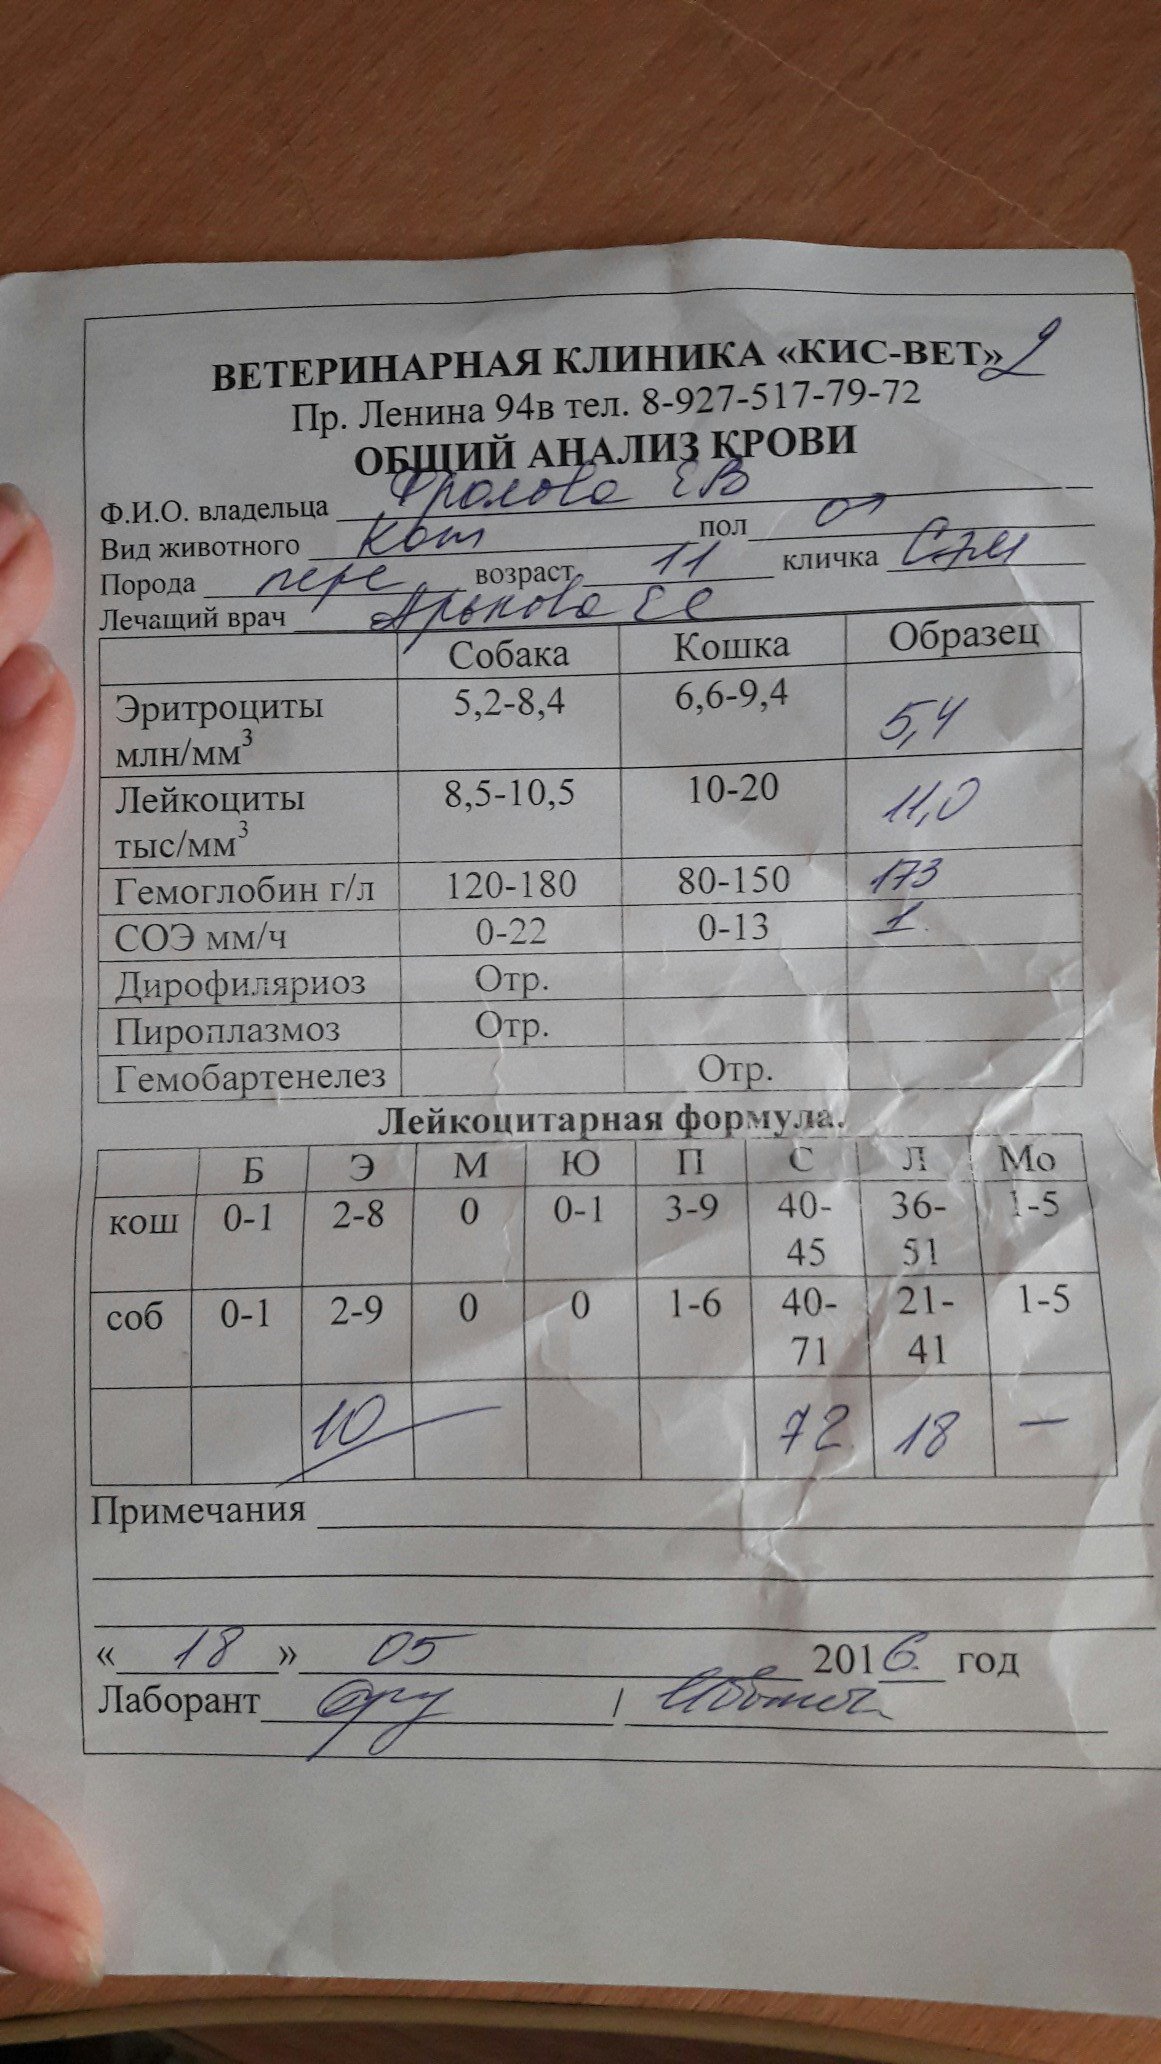 ВЕТЕРИНАРНАЯ КЛИНИКА «КИС-ВЕТ» 2
Пр. Ленина 94в тел. 8-927-517-79-72
ОБЩИЙ АНАЛИЗ КРОВИ
Ф.И.О. владельца Фролова ЕВ
Вид животного Кот пол ♂
Порода перс возраст 11 кличка Сэм
Лечащий врач ЕС
Собака Кошка Образец
Эритроциты млн/мм³ 5,2-8,4 6,6-9,4 5,4
Лейкоциты тыс/мм³ 8,5-10,5 10-20 11,0
Гемоглобин г/л 120-180 80-150 173
СОЭ мм/ч 0-22 0-13 1
Дирофиляриоз Отр.
Пироплазмоз Отр.
Гемобартенелез Отр.
Лейкоцитарная формула.
Б Э М Ю П С Л Мо
кош 0-1 2-8 0 0-1 3-9 40-45 36-51 1-5
соб 0-1 2-9 0 0 1-6 40-71 21-41 1-5
10 72 18 —
Примечания
« 18 » 05 2016 год
Лаборант /